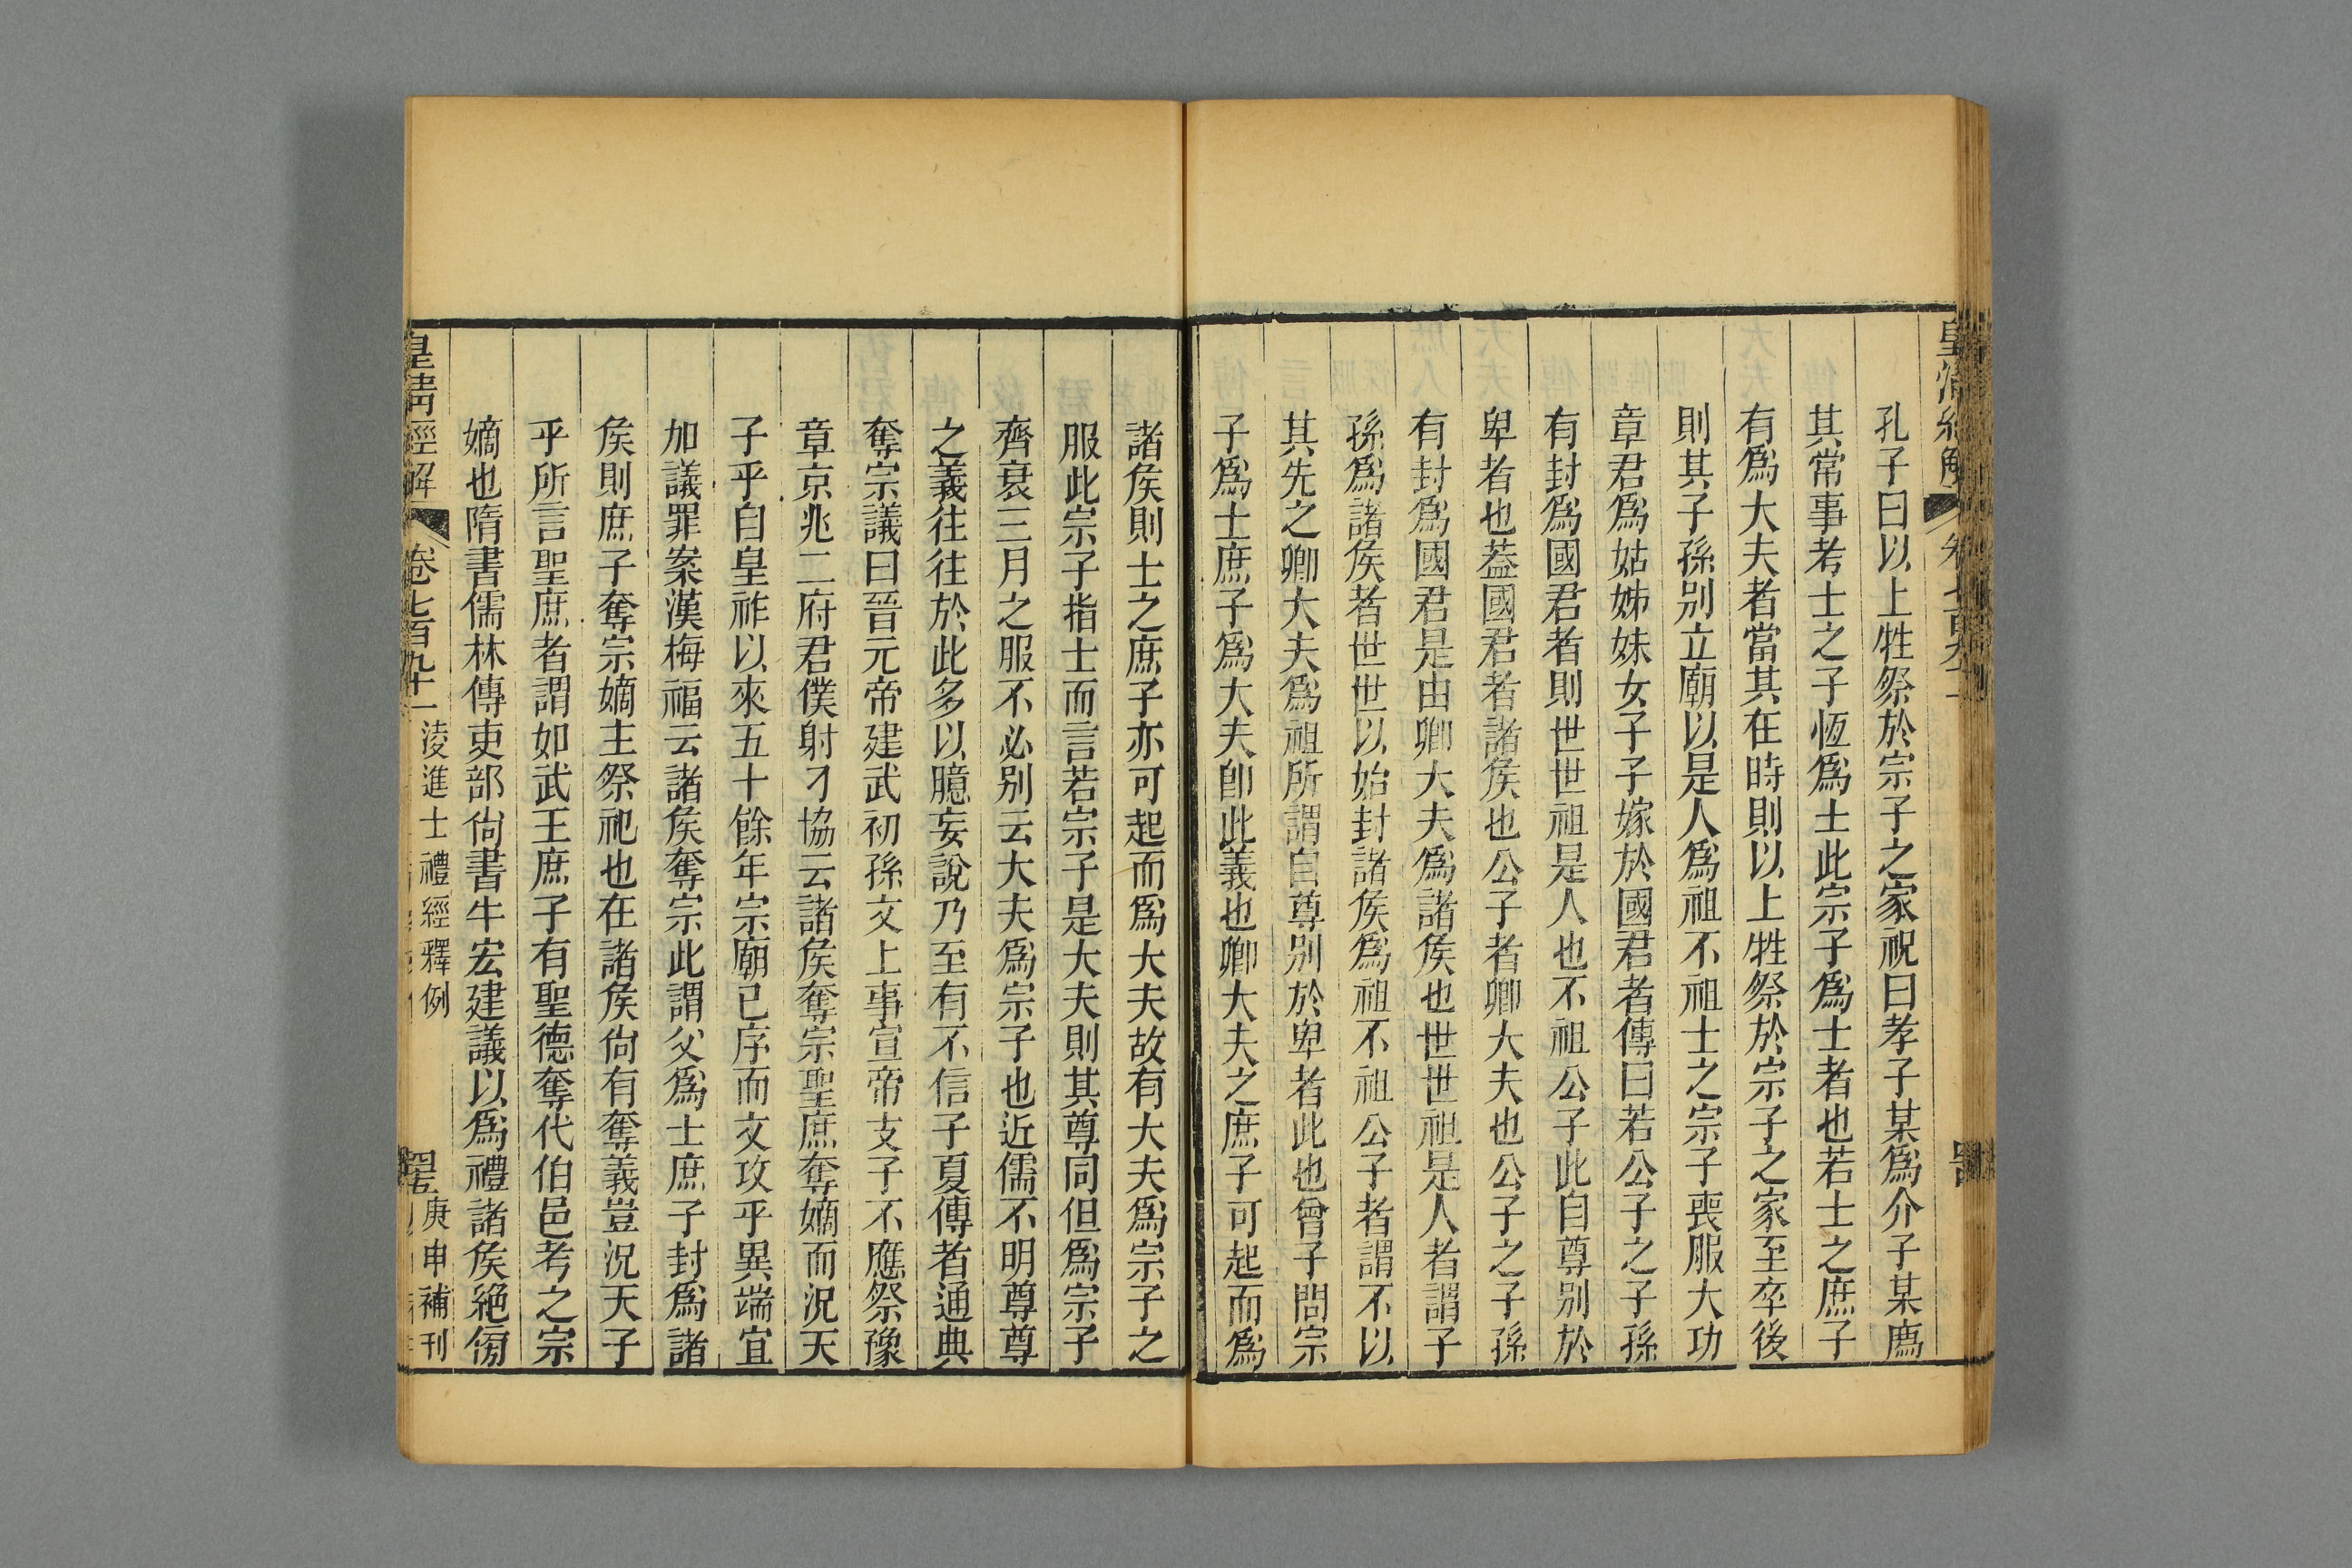 孔子曰以上牲祭於宗子之家祝曰孝子某爲介子某薦
其常事考士之子恆爲士此宗子爲士者也若士之庶子
有爲大夫者當其在時則以上牲祭於宗子之家至卒後
則其子孫別立廟以是人爲祖不祖士之宗子喪服大功
章君爲姑姊妹女子子嫁於國君者傳曰若公子之子孫
有封爲國君者則世世祖是人也不祖公子此自尊別於
卑者也葢國君者諸侯也公子者卿大夫也公子之子孫
有封爲國君是由卿大夫爲諸侯也世世祖是人者謂子
孫爲諸侯者世世以始封諸侯爲祖不祖公子者謂不以
其先之卿大夫爲祖所謂自尊別於卑者此也曾子問宗
子爲士庶子爲大夫卽此義也卿大夫之庶子可起而爲
諸侯則士之庶子亦可起而爲大夫故有大夫爲宗子之
服此宗子指士而言若宗子是大夫則其尊同但爲宗子
齊衰三月之服不必別云大夫爲宗子也近儒不明尊尊
之義往往於此多以臆妄說乃至有不信子夏傳者通典
奪宗議曰晉元帝建武初孫文上事宣帝支子不應祭豫
章京兆二府君僕射刁協云諸侯奪宗聖庶奪嫡而況天
子乎自皇祚以來五十餘年宗廟已序而文攻乎異端宜
加議罪案漢梅福云諸侯奪宗此謂父爲士庶子封爲諸
侯則庶子奪宗嫡主祭祀也在諸侯尙有奪義豈況天子
乎所言聖庶者謂如武王庶子有聖德奪代伯邑考之宗
嫡也隋書儒林傳吏部尙書牛宏建議以爲禮諸侯絕傍
皇清經解 卷七百九十一 淩進士禮經釋例 庚申補刊